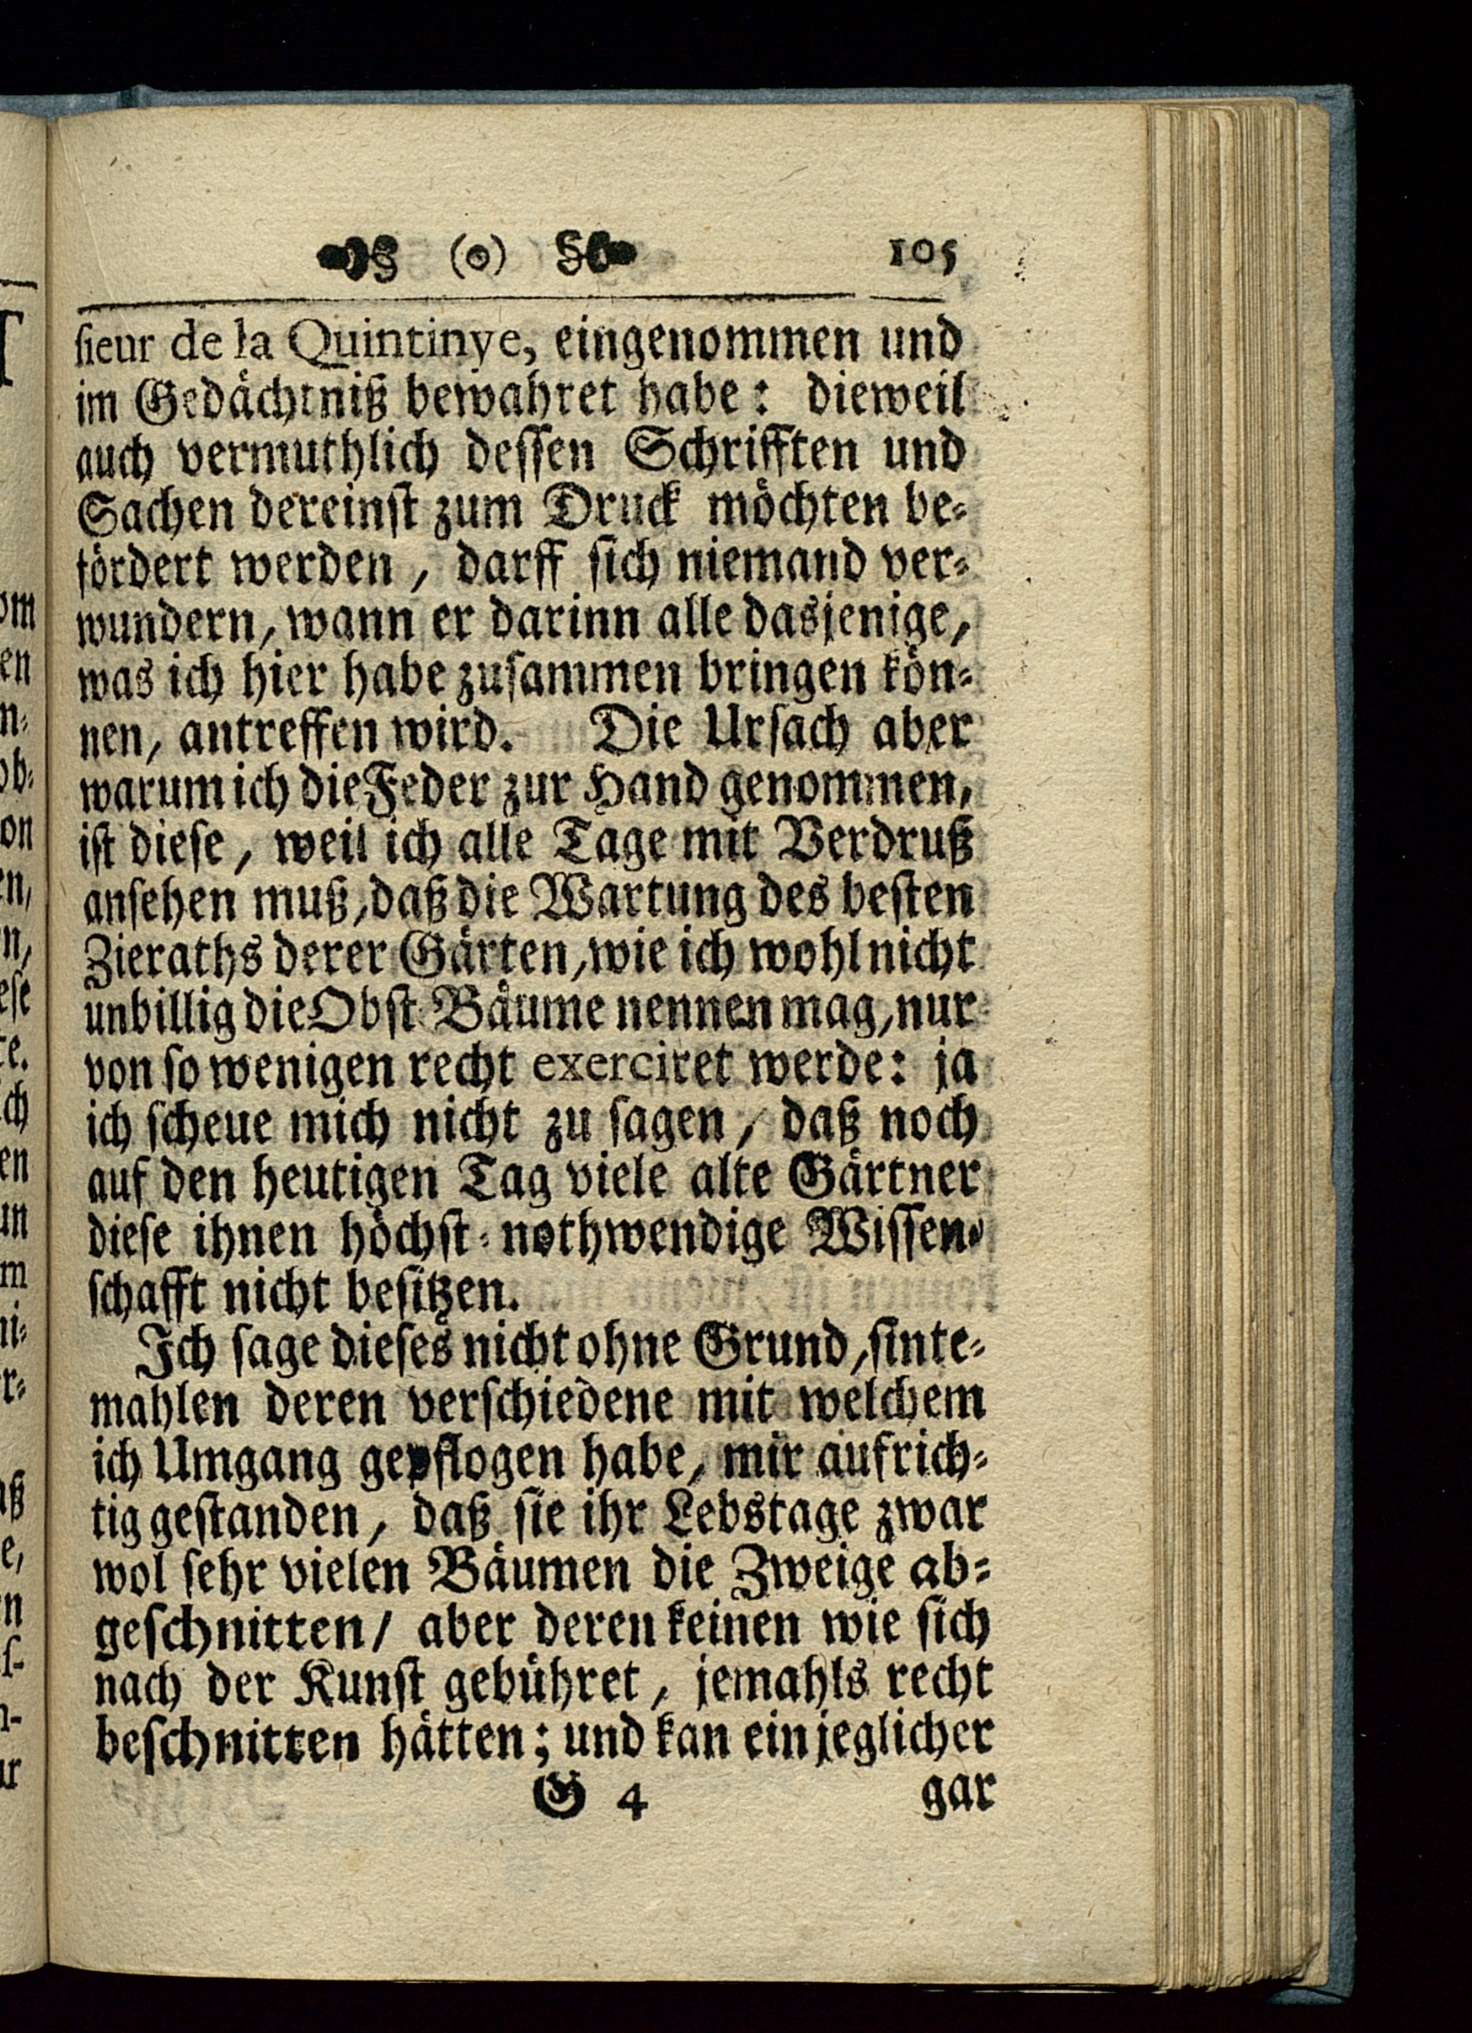 (o) 105
sieur de la Quintinye, eingenommen und
im Gedächtniß bewahret habe: dieweil
auch vermuthlich dessen Schrifften und
Sachen dereinst zum Druck möchten be-
fördert werden, darff sich niemand ver-
wundern, wann er darinn alle dasjenige,
was ich hier habe zusammen bringen kön-
nen, antreffen wird. Die Ursach aber
warum ich die Feder zur Hand genommen,
ist diese, weil ich alle Tage mit Verdruß
ansehen muß, daß die Wartung des besten
Zieraths derer Gärten, wie ich wohl nicht
unbillig die Obst Bäume nennen mag, nur
von so wenigen recht exerciret werde: ja
ich scheue mich nicht zu sagen, daß noch
auf den heutigen Tag viele alte Gärtner
diese ihnen höchst-nothwendige Wissen-
schafft nicht besitzen.
Ich sage dieses nicht ohne Grund, sinte-
mahlen deren verschiedene mit welchem
ich Umgang gepflogen habe, mir aufrich-
tig gestanden, daß sie ihr Lebstage zwar
wol sehr vielen Bäumen die Zweige ab-
geschnitten/ aber deren keinen wie sich
nach der Kunst gebühret, jemahls recht
beschnitten hätten; und kan ein jeglicher
G 4 gar